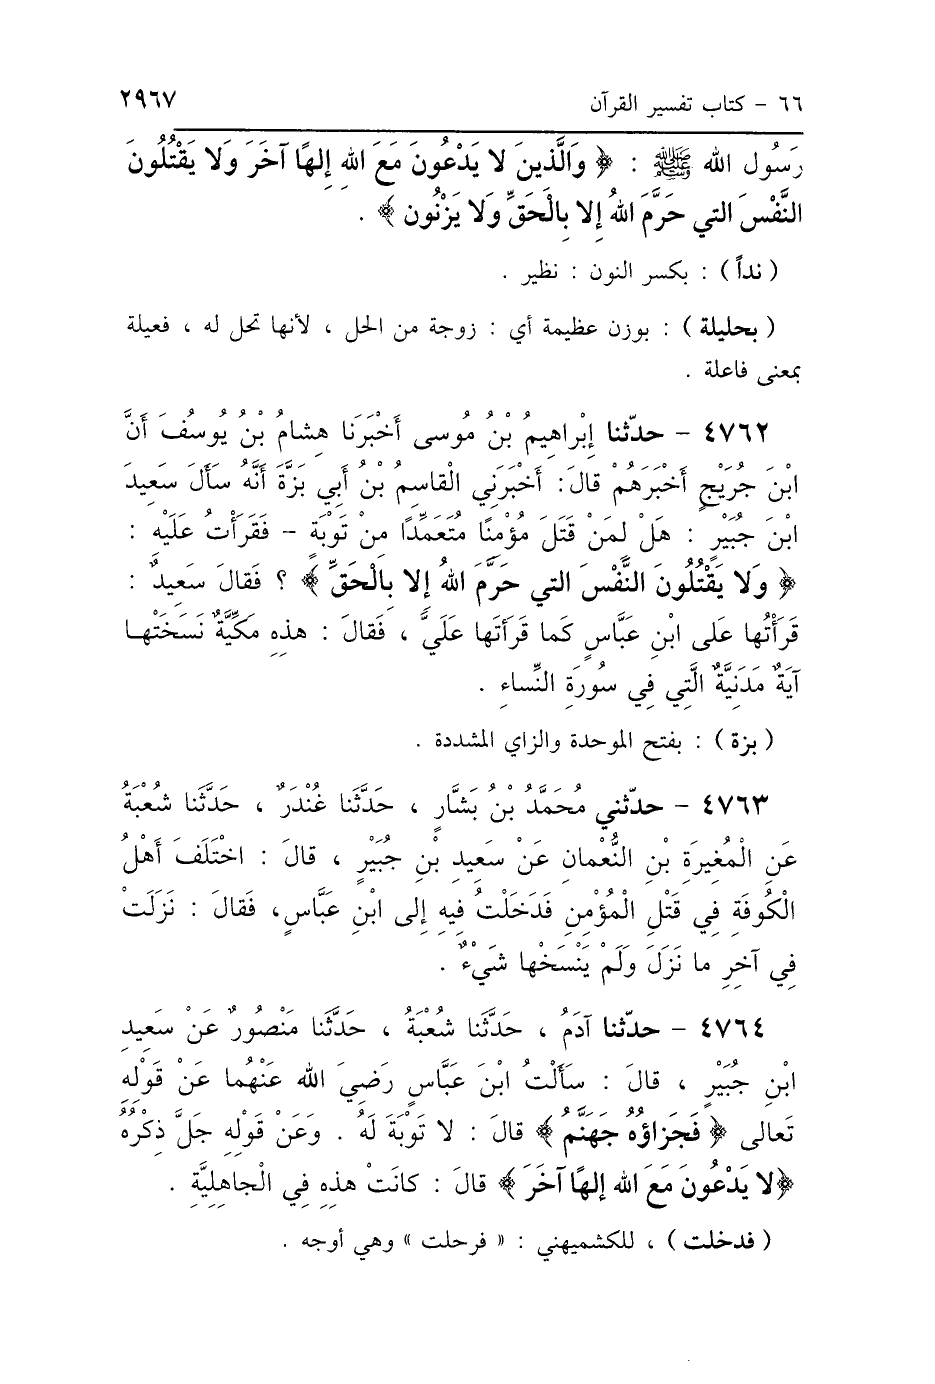 ٦٦ - كتاب تفسير القرآن ٢٩٦٧
رَسُول الله ﷺ : ﴿ وَالَّذِينَ لا يَدْعُونَ مَعَ اللهِ إلهًا آخَرَ وَلا يَقْتُلُونَ
النَّفْسَ التي حَرَّمَ اللهُ إلا بِالْحَقِّ وَلا يَزْنُون ﴾ .
( نداً ) : بكسر النون : نظير .
( بحليلة ) : بوزن عظيمة أي : زوجة من الحل ، لأنها تحل له ، فعيلة
بمعنى فاعلة .
٤٧٦٢ - حدّثنا إبْراهيمُ بْنُ مُوسى أَخْبَرَنا هِشامُ بْنُ يُوسُفَ أَنَّ
ابْنَ جُرَيْجٍ أَخْبَرَهُمْ قالَ: أَخْبَرَنِي الْقاسِمُ بْنُ أَبِي بَزَّةَ أَنَّهُ سَأَلَ سَعِيدَ
ابْنَ جُبَيْرٍ : هَلْ لِمَنْ قَتَلَ مُؤْمِنًا مُتَعَمِّدًا مِنْ تَوْبَةٍ - فَقَرَأْتُ عَلَيْهِ :
﴿ وَلا يَقْتُلُونَ النَّفْسَ التي حَرَّمَ اللهُ إلا بِالْحَقِّ ﴾ ؟ فَقالَ سَعِيدٌ :
قَرَأْتُها عَلى ابْنِ عَبَّاسٍ كَما قَرَأتَها عَلَيَّ ، فَقالَ : هذِهِ مَكِّيَّةٌ نَسَخَتْها
آيَةٌ مَدَنِيَّةٌ الَّتِي فِي سُورَةِ النِّساءِ .
( بزة ) : بفتح الموحدة والزاي المشددة .
٤٧٦٣ - حدّثني مُحَمَّدُ بْنُ بَشَّارٍ ، حَدَّثَنا غُنْدَرٌ ، حَدَّثَنا شُعْبَةُ
عَنِ الْمُغِيرَةِ بْنِ النُّعْمانِ عَنْ سَعِيدِ بْنِ جُبَيْرٍ ، قالَ : اخْتَلَفَ أَهْلُ
الْكُوفَةِ فِي قَتْلِ الْمُؤْمِنِ فَدَخَلْتُ فِيهِ إلى ابْنِ عَبَّاسٍ، فَقالَ : نَزَلَتْ
فِي آخِرِ ما نَزَلَ وَلَمْ يَنْسَخْها شَيْءٌ .
٤٧٦٤ - حدّثنا آدَمُ ، حَدَّثَنا شُعْبَةُ ، حَدَّثَنا مَنْصُورٌ عَنْ سَعِيدِ
ابْنِ جُبَيْرٍ ، قالَ : سَأَلْتُ ابْنَ عَبَّاسٍ رَضِيَ الله عَنْهُما عَنْ قَوْلِهِ
تَعالى ﴿ فَجَزاؤُه جَهَنَّمُ ﴾ قالَ : لا تَوْبَةَ لَهُ . وَعَنْ قَوْلِهِ جَلَّ ذِكْرُهُ
﴿لا يَدْعُونَ مَعَ اللهِ إلهًا آخَرَ ﴾ قالَ : كانَتْ هذِهِ فِي الْجاهِلِيَّةِ .
( فدخلت ) ، للكشميهني : « فرحلت » وهي أوجه .